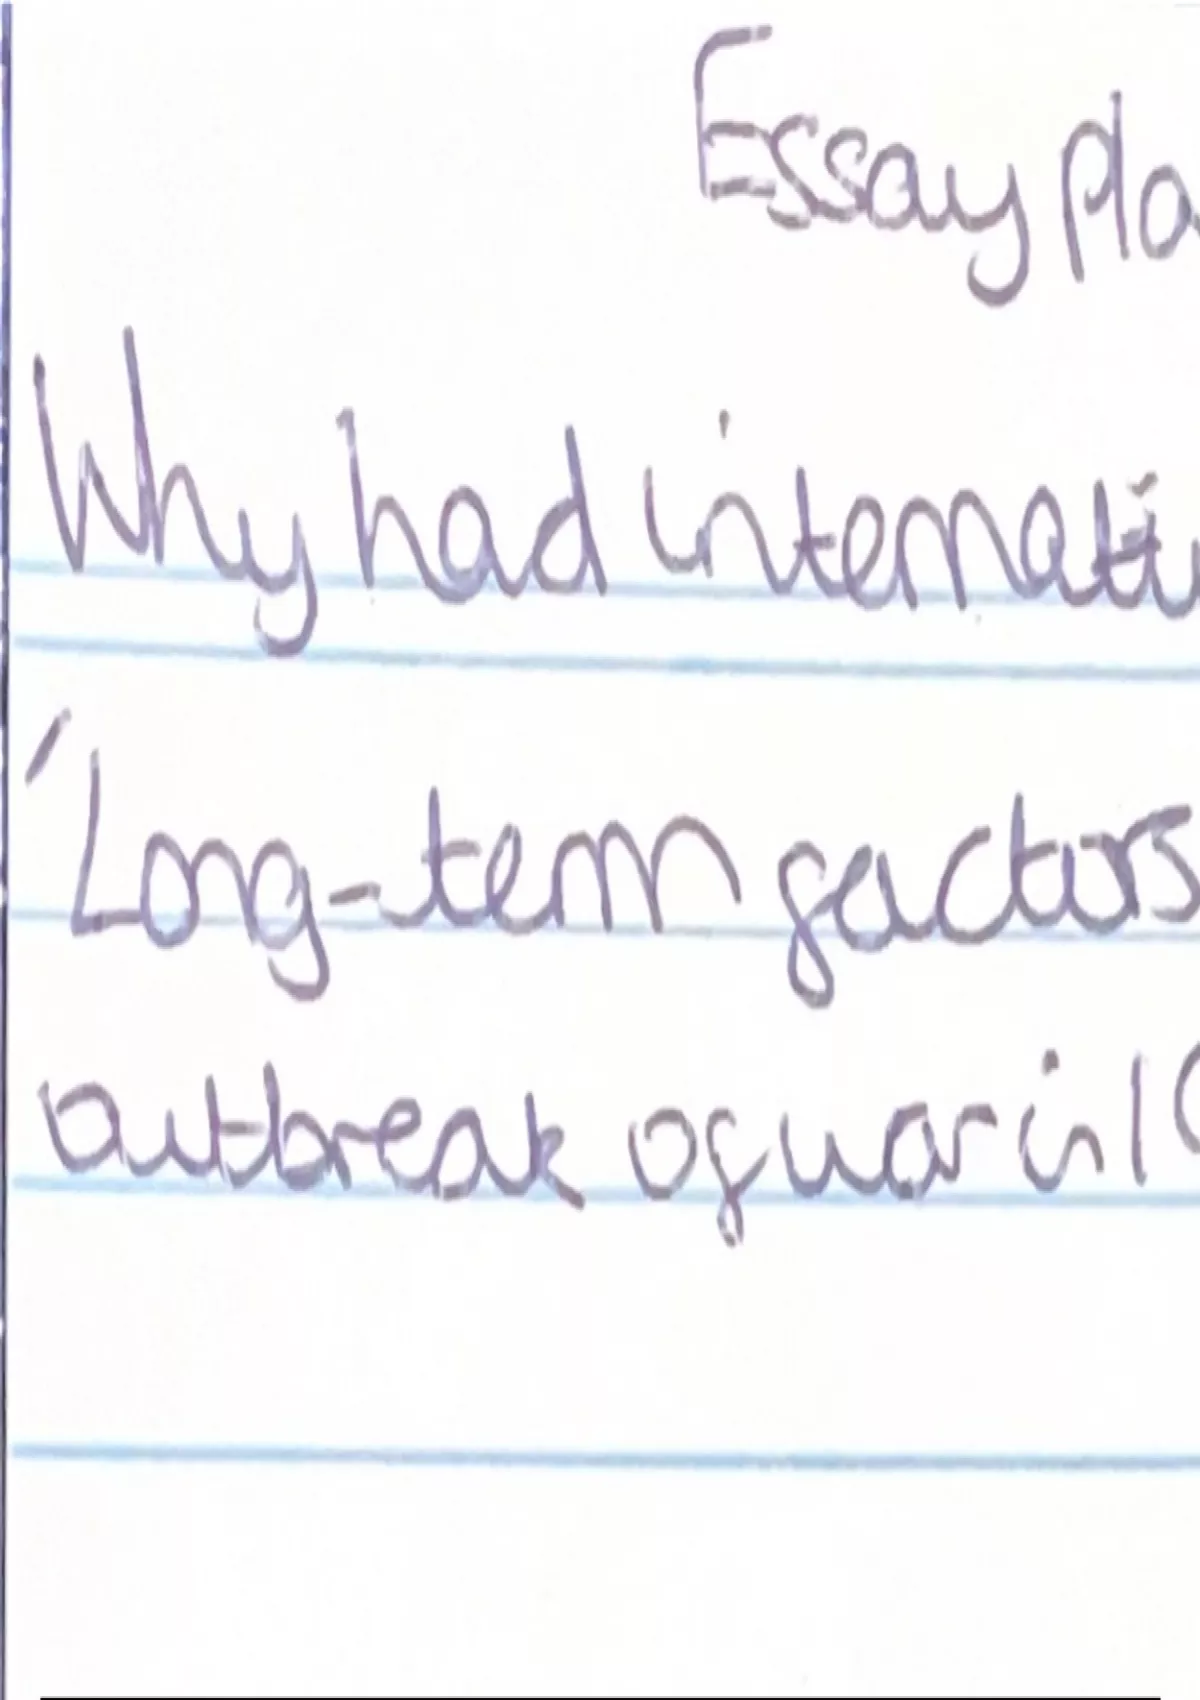 Essay pla
Why had internati
'Long-term factors
outbreak of war in 19